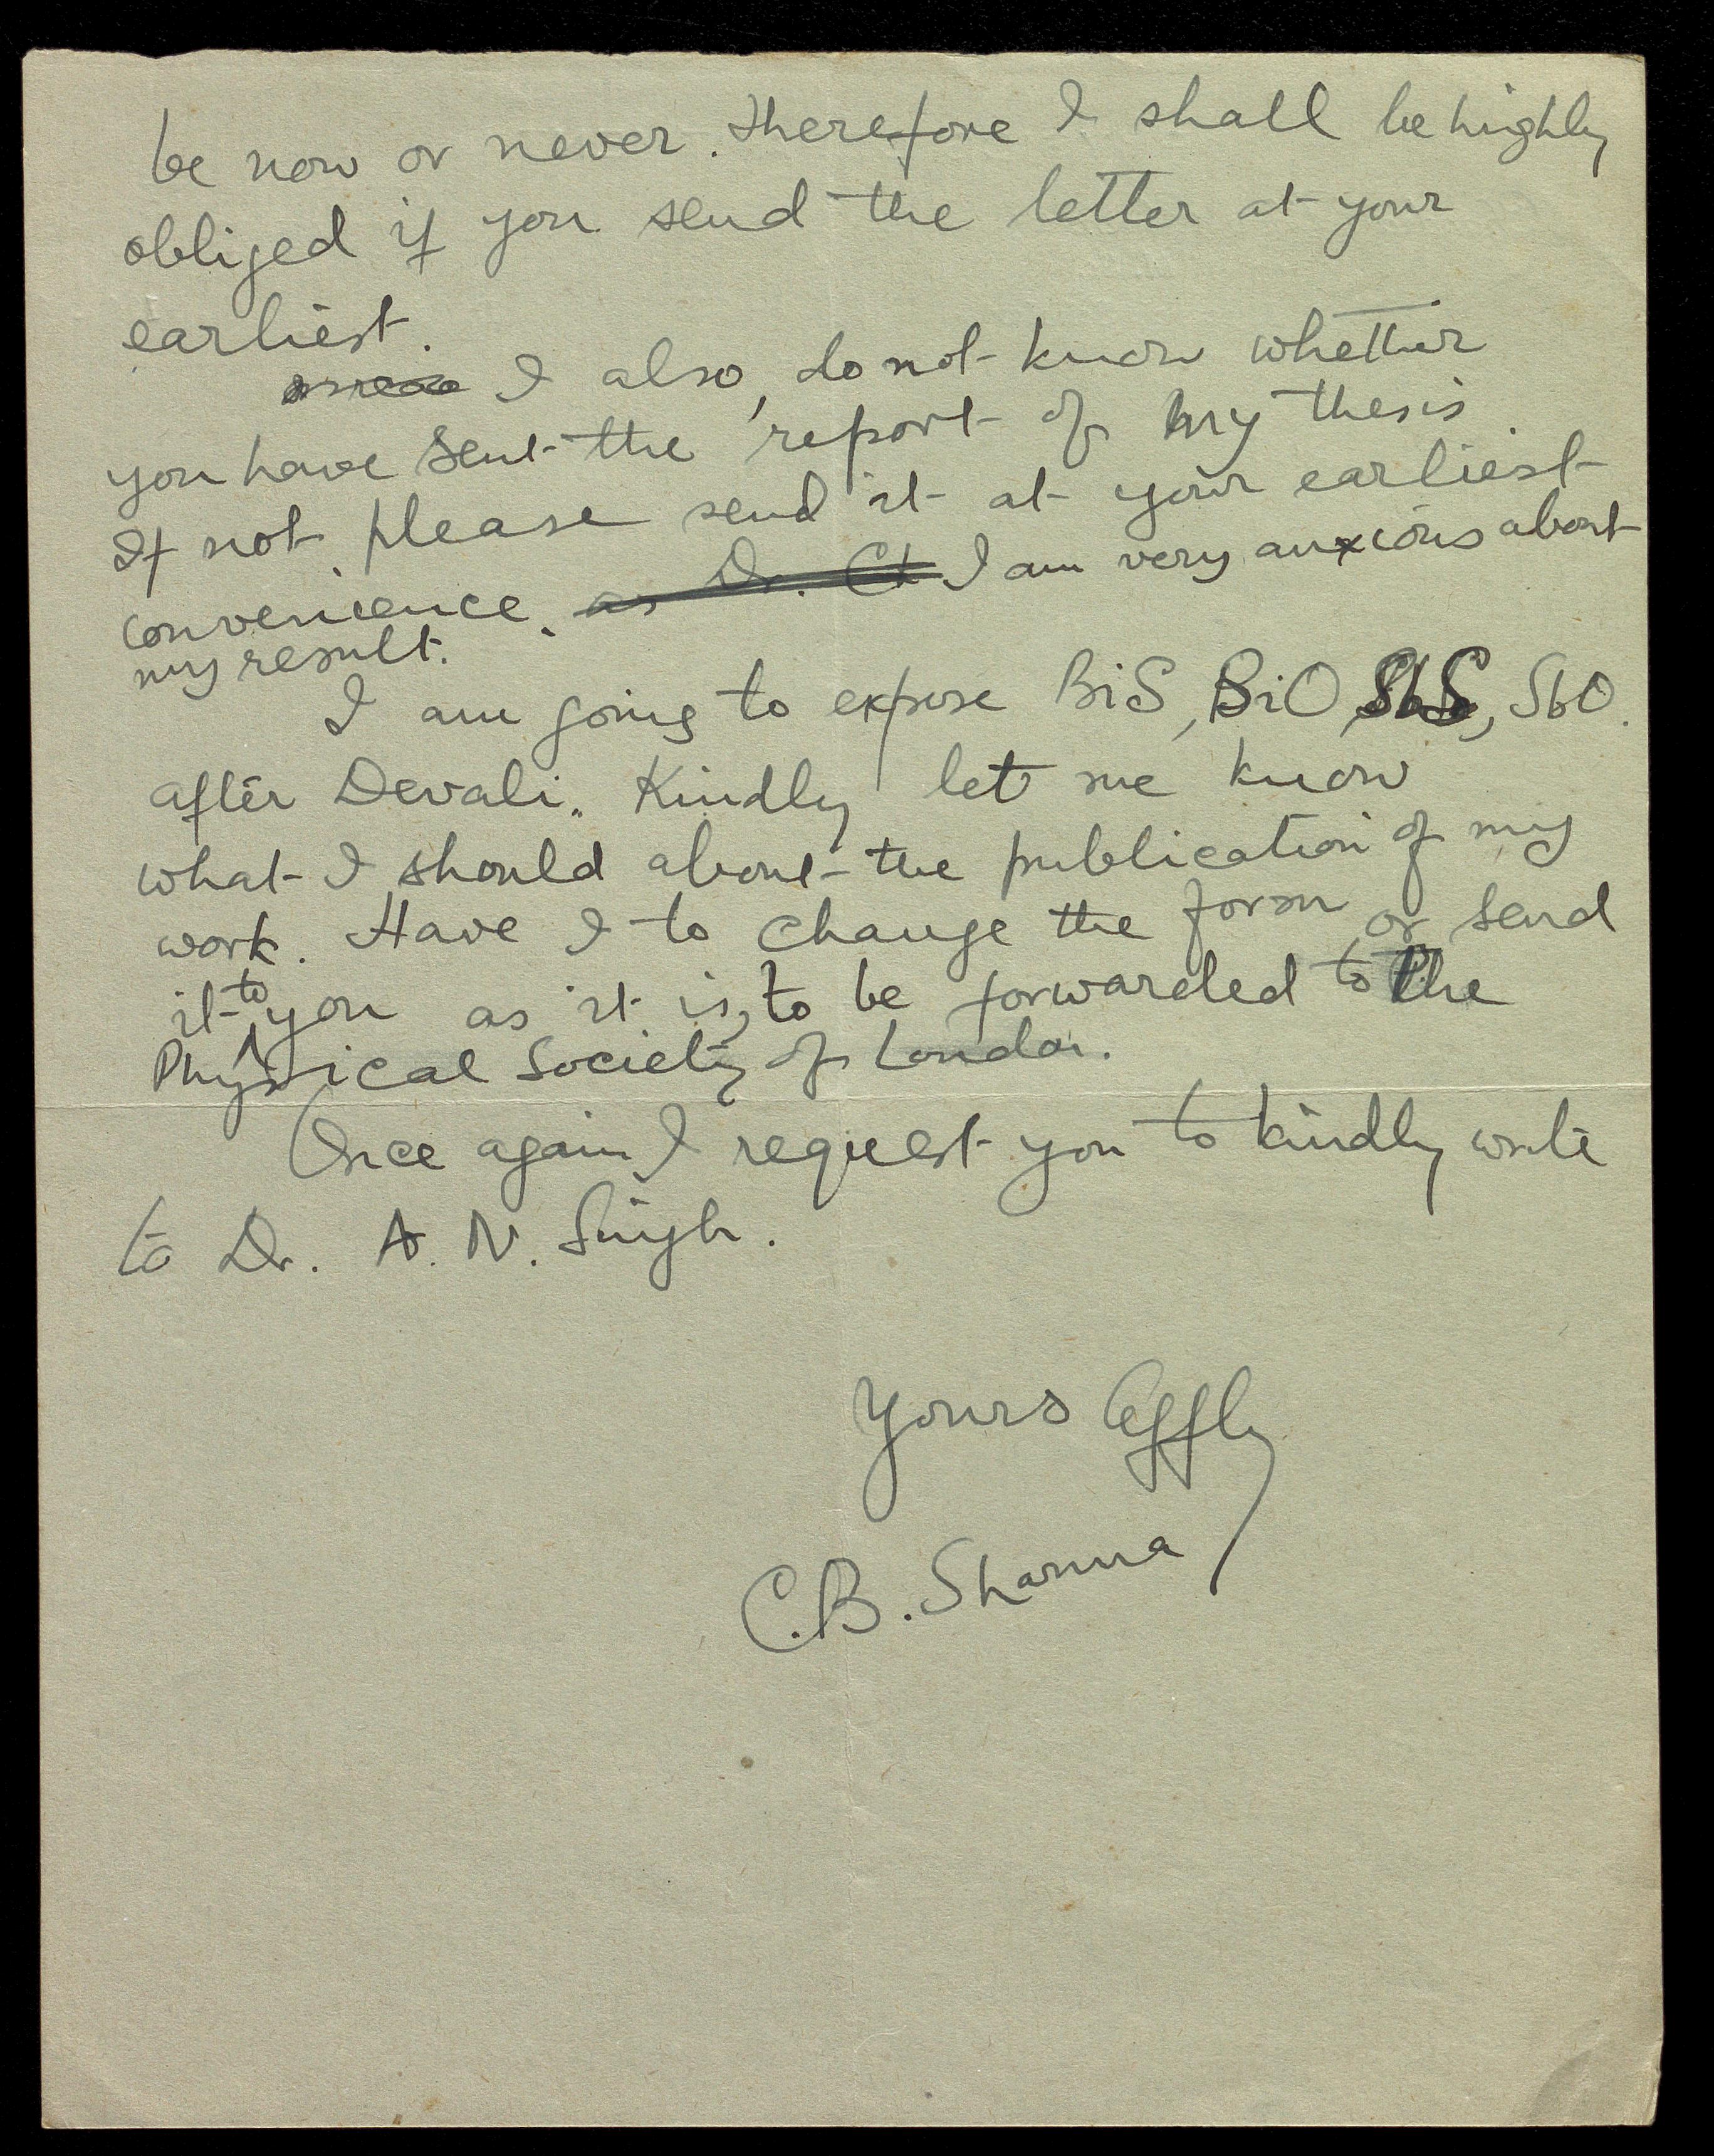 be now or never. Therefore I shall be highly
obliged if you send the letter at your
earliest.
I also, do not know whether
you have sent the report of my thesis
If not please send it at your earliest
convenience. as Dr. Ct I am very anxious about
my result.
I am going to expose BiS, BiO, SbS, SbO.
after Devali. Kindly let me know
what I should about the publication of my
work. Have I to change the form or send
it to you as it is, to be forwarded to the
Physical Society of London.
Once again I request you to kindly write
to Dr. A. N. Singh.
Yours affly
C.B. Sharma